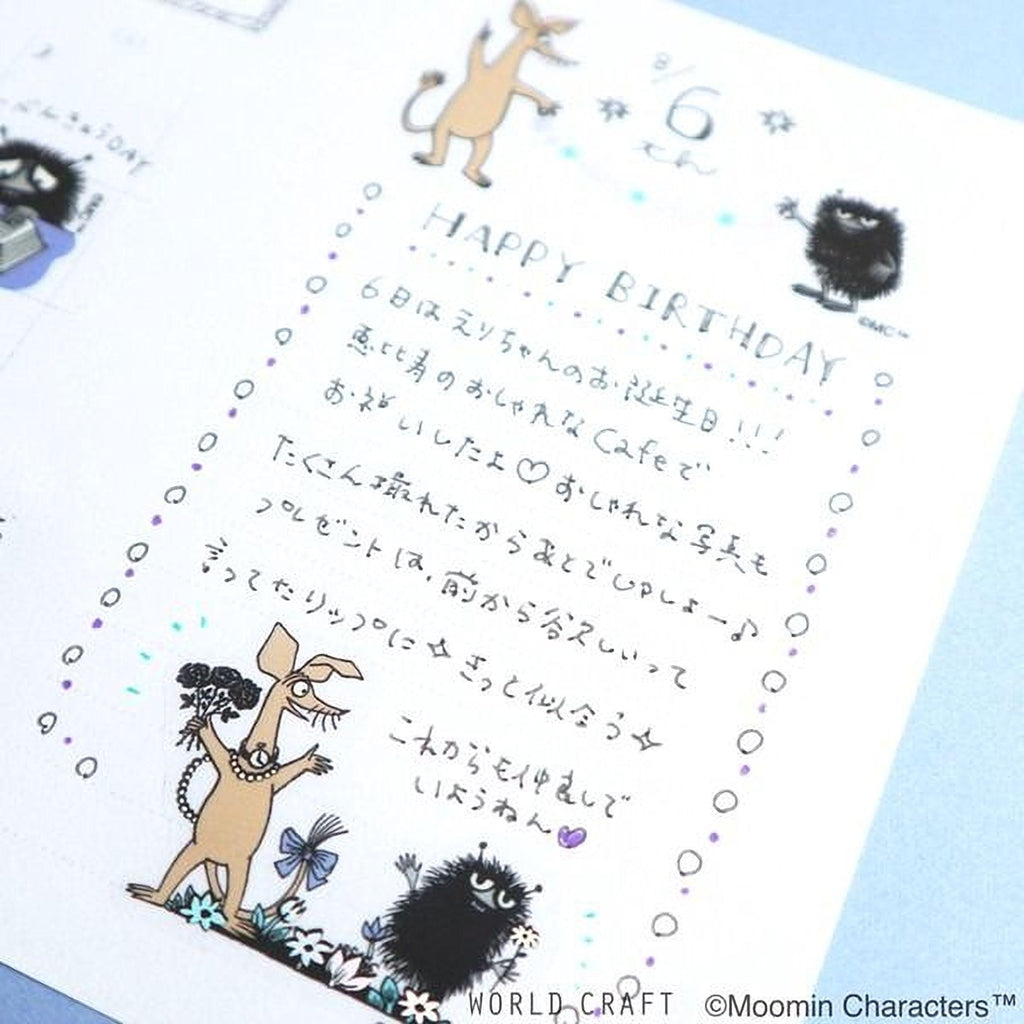 8/6
th
HAPPY BIRTHDAY
6日はえりちゃんのお誕生日!!!
恵比寿のおしゃれなCafeで
お祝いしたよ♡おしゃれな写真も
たくさん撮れたからあとでシェしよー♪
プレゼントは、前から欲しいって
言ってたリップに✧きっと似合う✧
これからも仲良しで
いようねん💜
©MC™
DAY
WORLD CRAFT ©Moomin Characters™